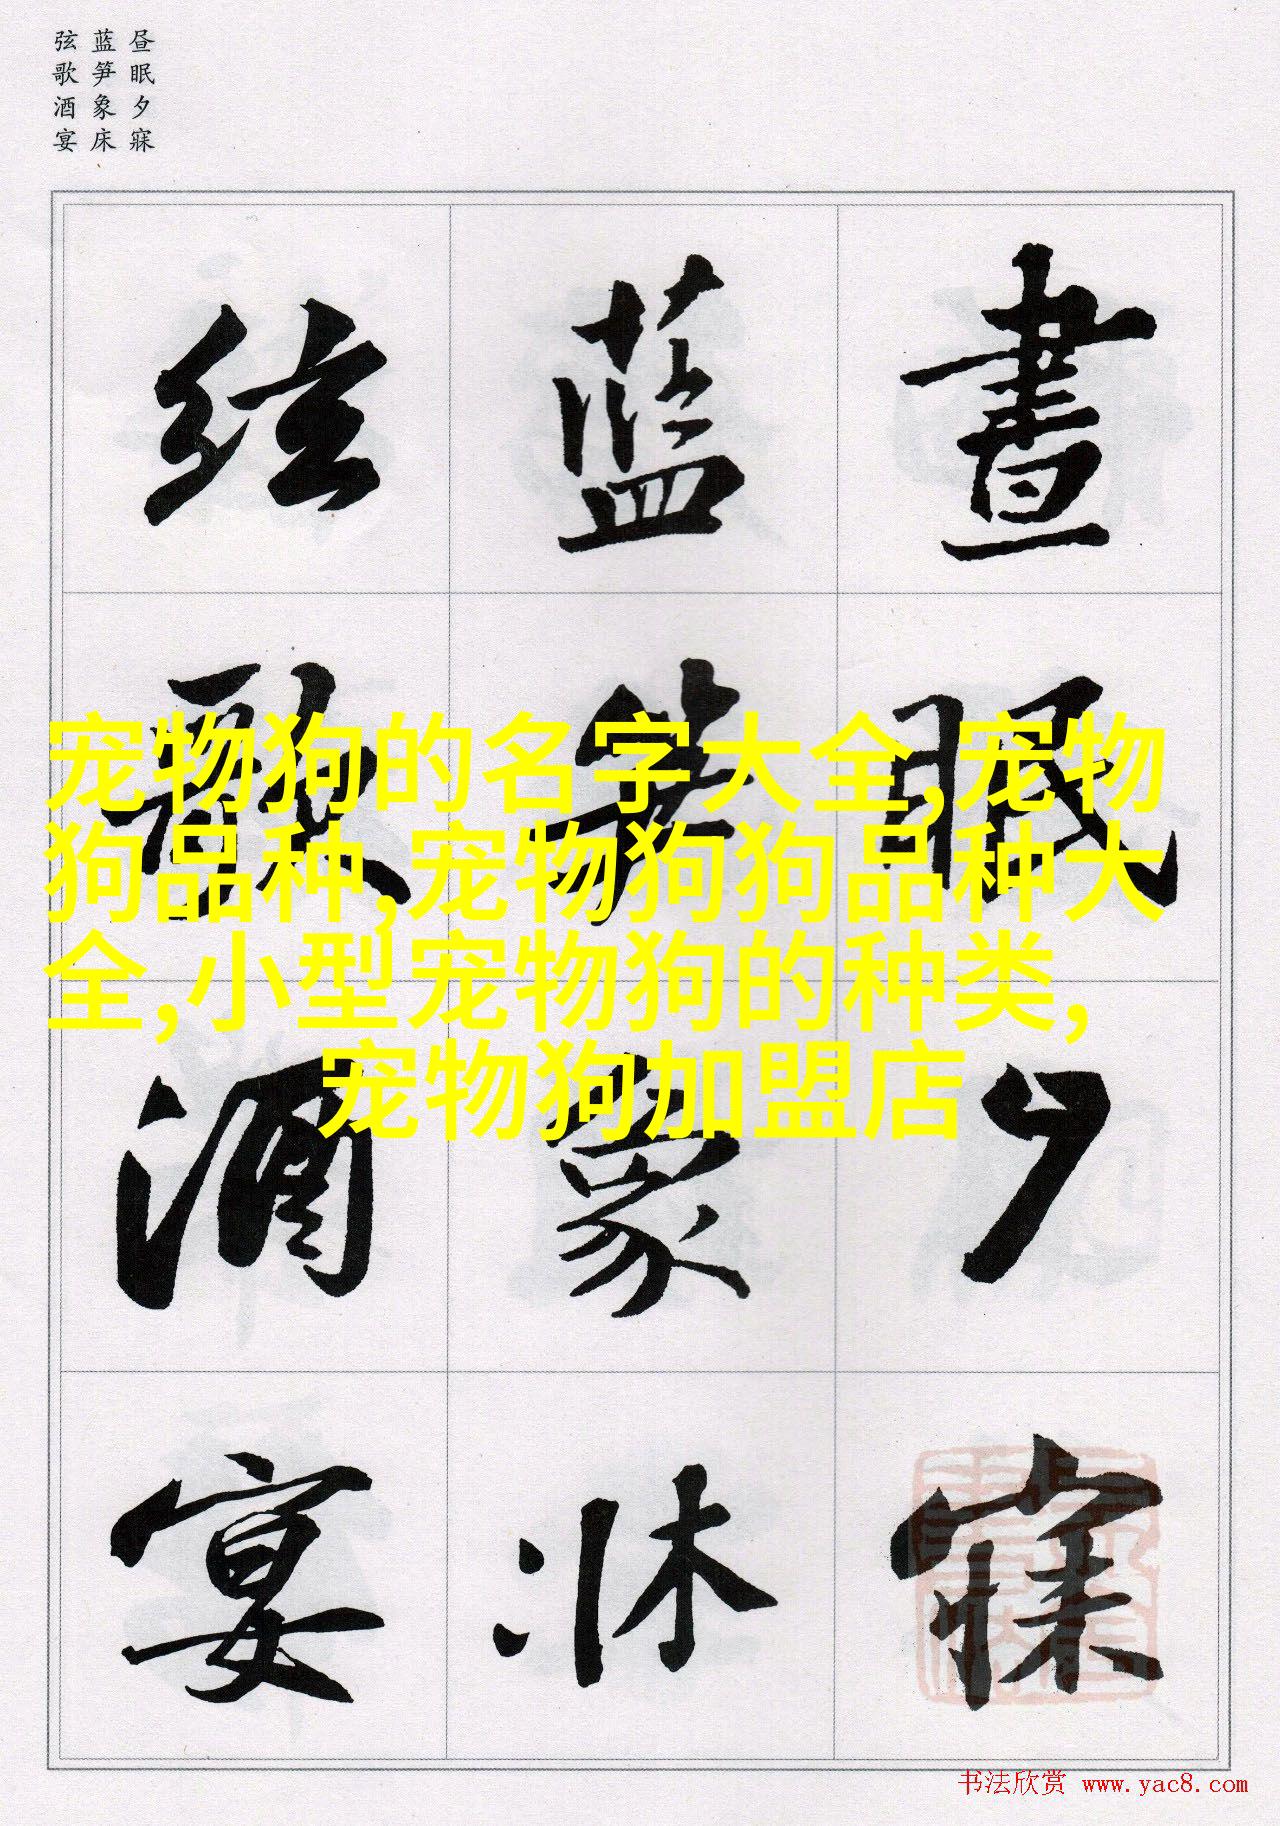 昼眠夕寐
蓝笋象床
弦歌酒宴
晝眠夕寐
藍笋象牀
絃歌酒宴
宠物狗的名字大全,宠物
狗品种,宠物狗狗品种大
全,小型宠物狗的种类,
宠物狗加盟店
书法欣赏 www.yac8.com